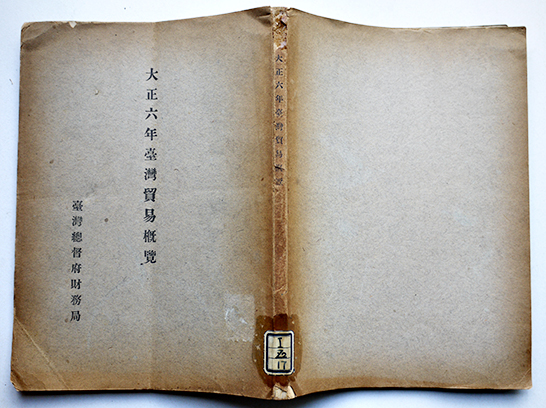 大正六年臺灣貿易概覽
臺灣總督府財務局
大正六年臺灣貿易概覽
I
17